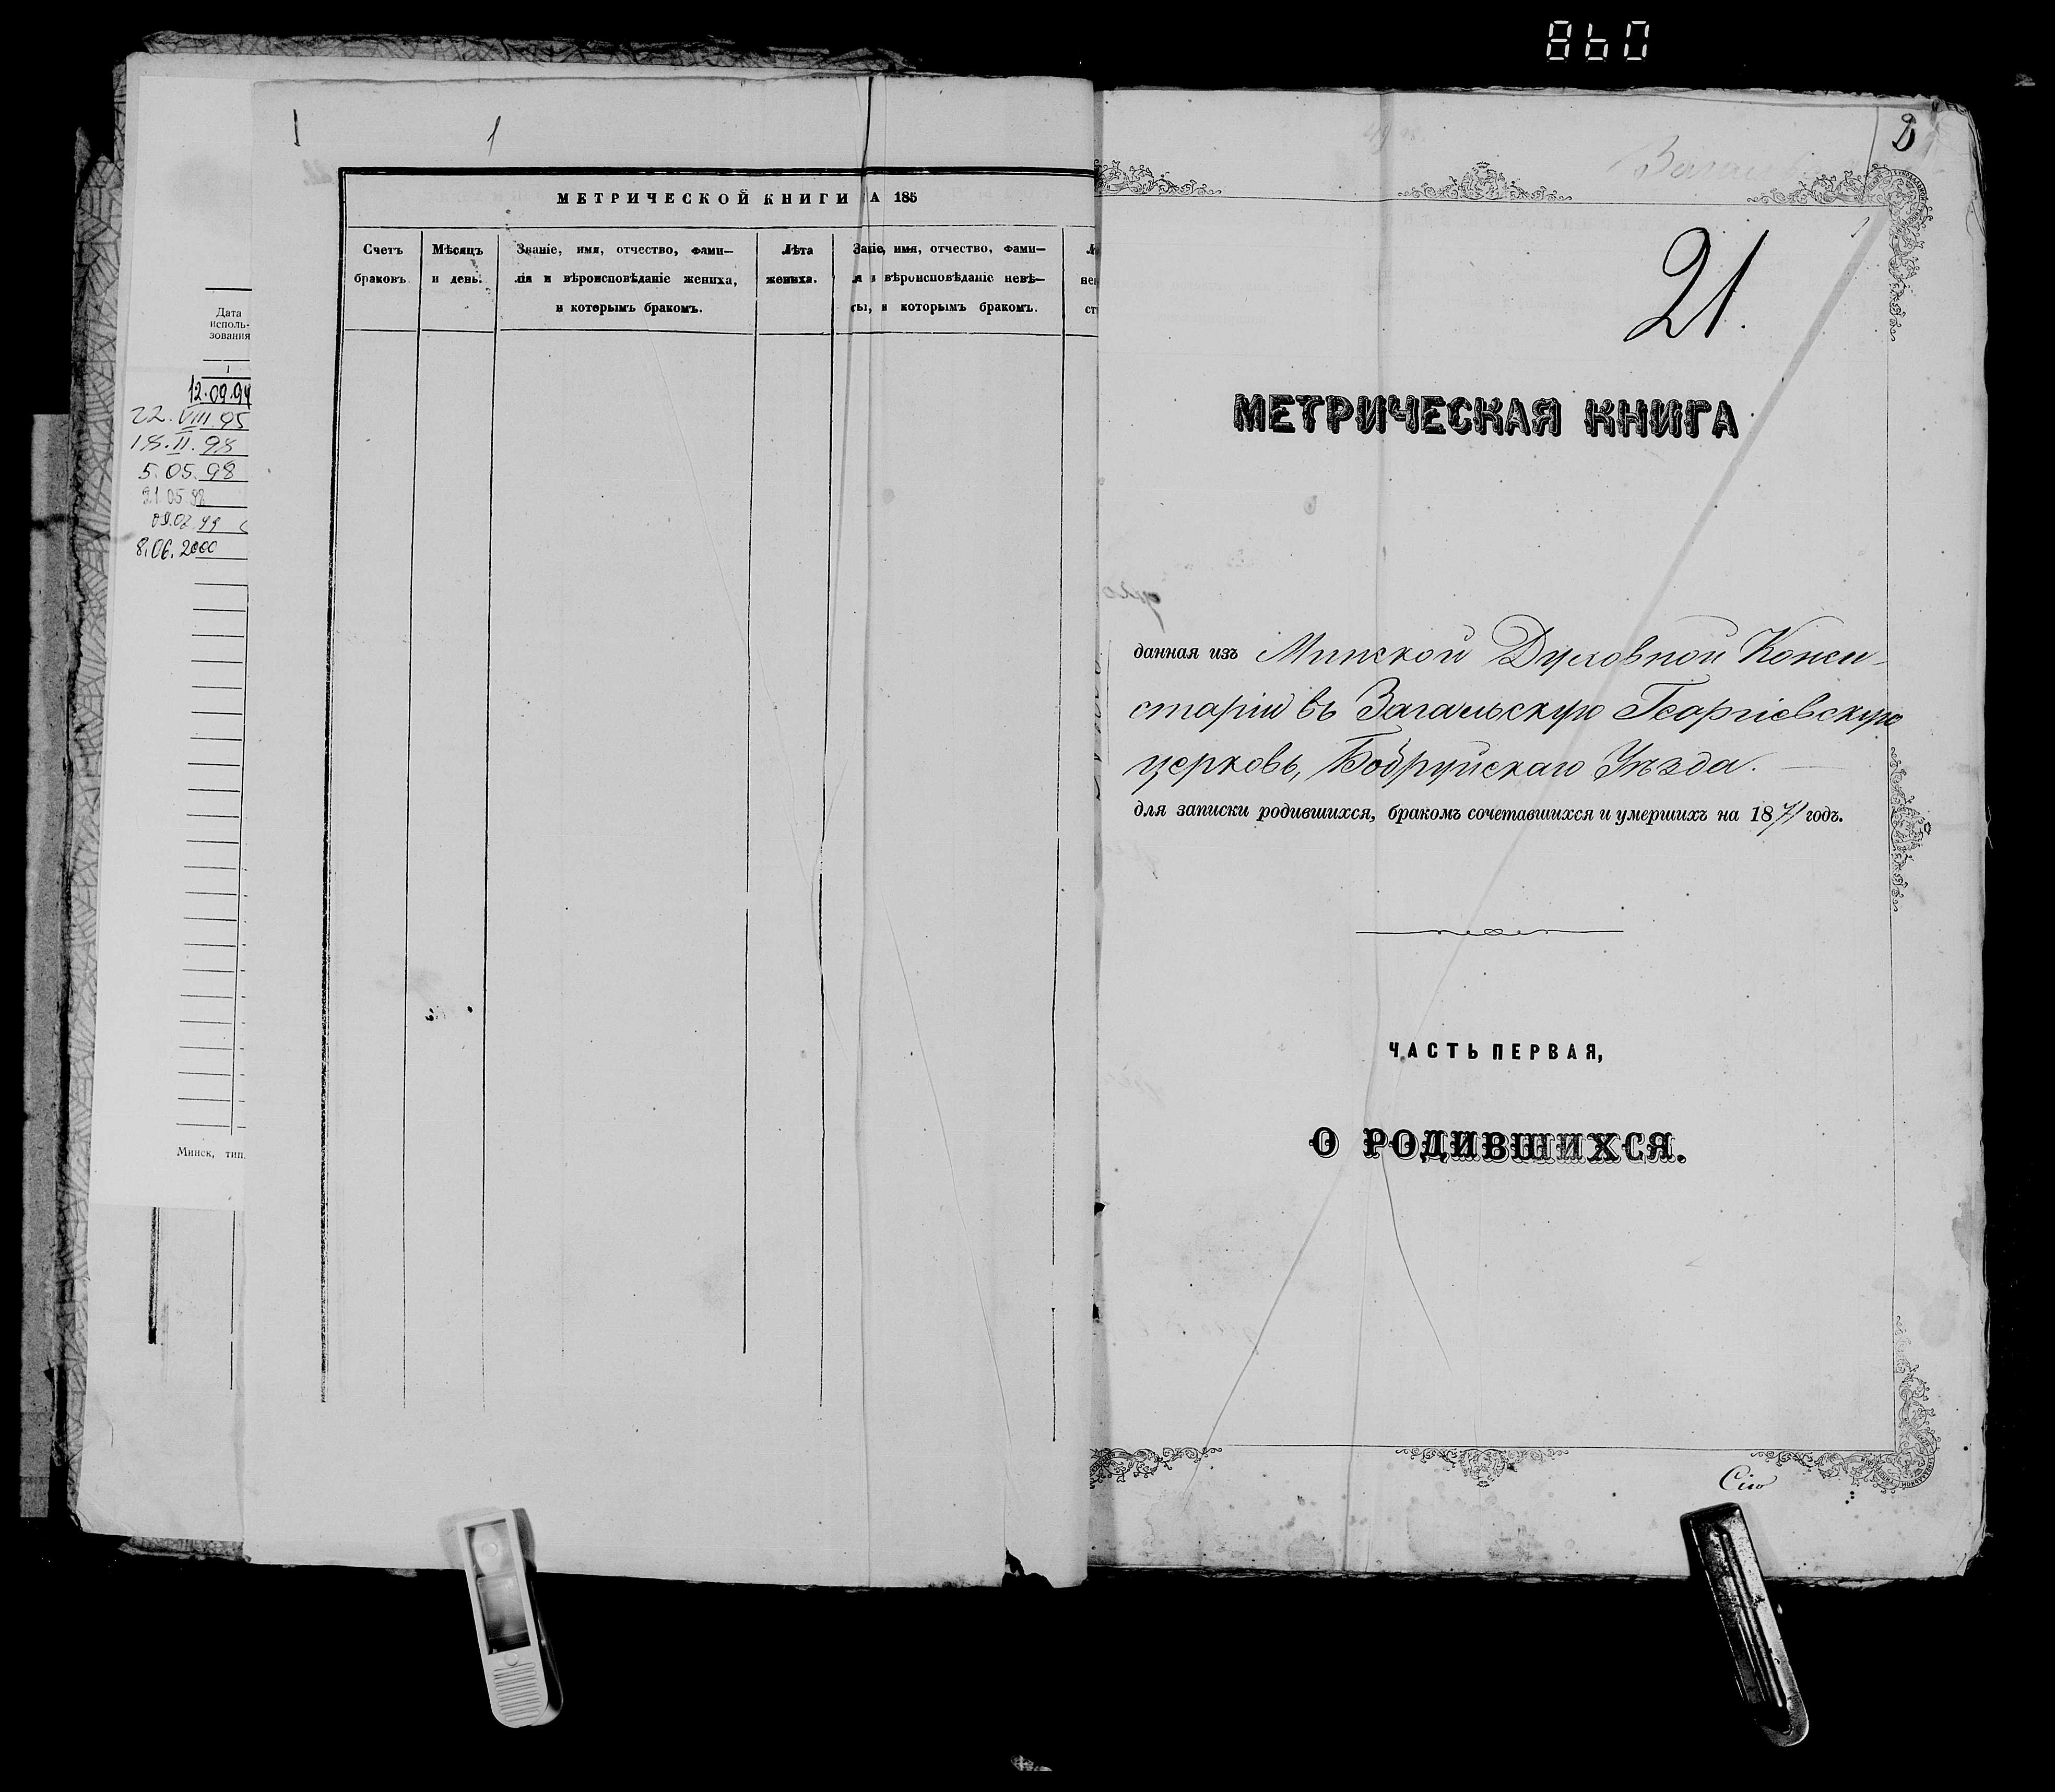 860
Дата
исполь-
зования
1
12.09.94
22.VIII.95
18.II.98
5.05.98
21.05.98
8.06.2000
Минск, тип.
1
МЕТРИЧЕСКОЙ КНИГИ А 185
Счетъ браковъ.
Мѣсяцъ и день.
Званіе, имя, отчество, фами—
лія и вѣроисповѣданіе жениха,
и которымъ бракомъ.
Лѣта жениха.
Заніе, имя, отчество, фами—
я и вѣроисповѣданіе невѣ—
ты, и которымъ бракомъ.
2
21.
МЕТРИЧЕСКАЯ КНИГА
данная изъ Минской Духовной Конси-
сторіи въ Загальскую Георгіевскую
церковь, Бобруйскаго Уѣзда.
для записки родившихся, бракомъ сочетавшихся и умершихъ на 1871 годъ.
ЧАСТЬ ПЕРВАЯ,
О РОДИВШИХСЯ.
Сію